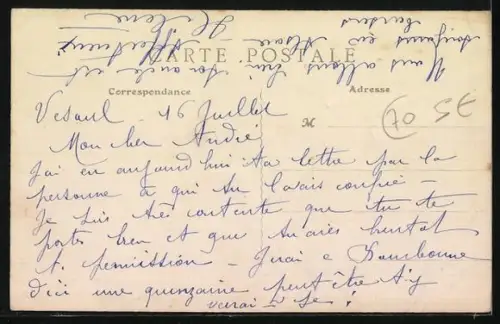 CARTE POSTALE
Correspondance
Adresse
M
(70 57
Vesoul - 16 Juillet
Mon cher André
J'ai eu aujourd'hui ta lettre par la
personne à qui tu l'avais confiée -
Je suis très contente que tu te
portes bien et que tu aies bientôt
ta permission - J'irai à Bourbonne
d'ici une quinzaine peut être t'y
verrai-je !
Nous allons
Hélène